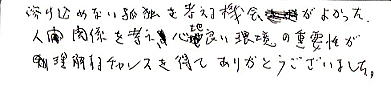 溶け込めない孤独を考える機会がよかった。
人間関係を考え心地良い環境の重要性が
理解チャンスを得てありがとうございました。